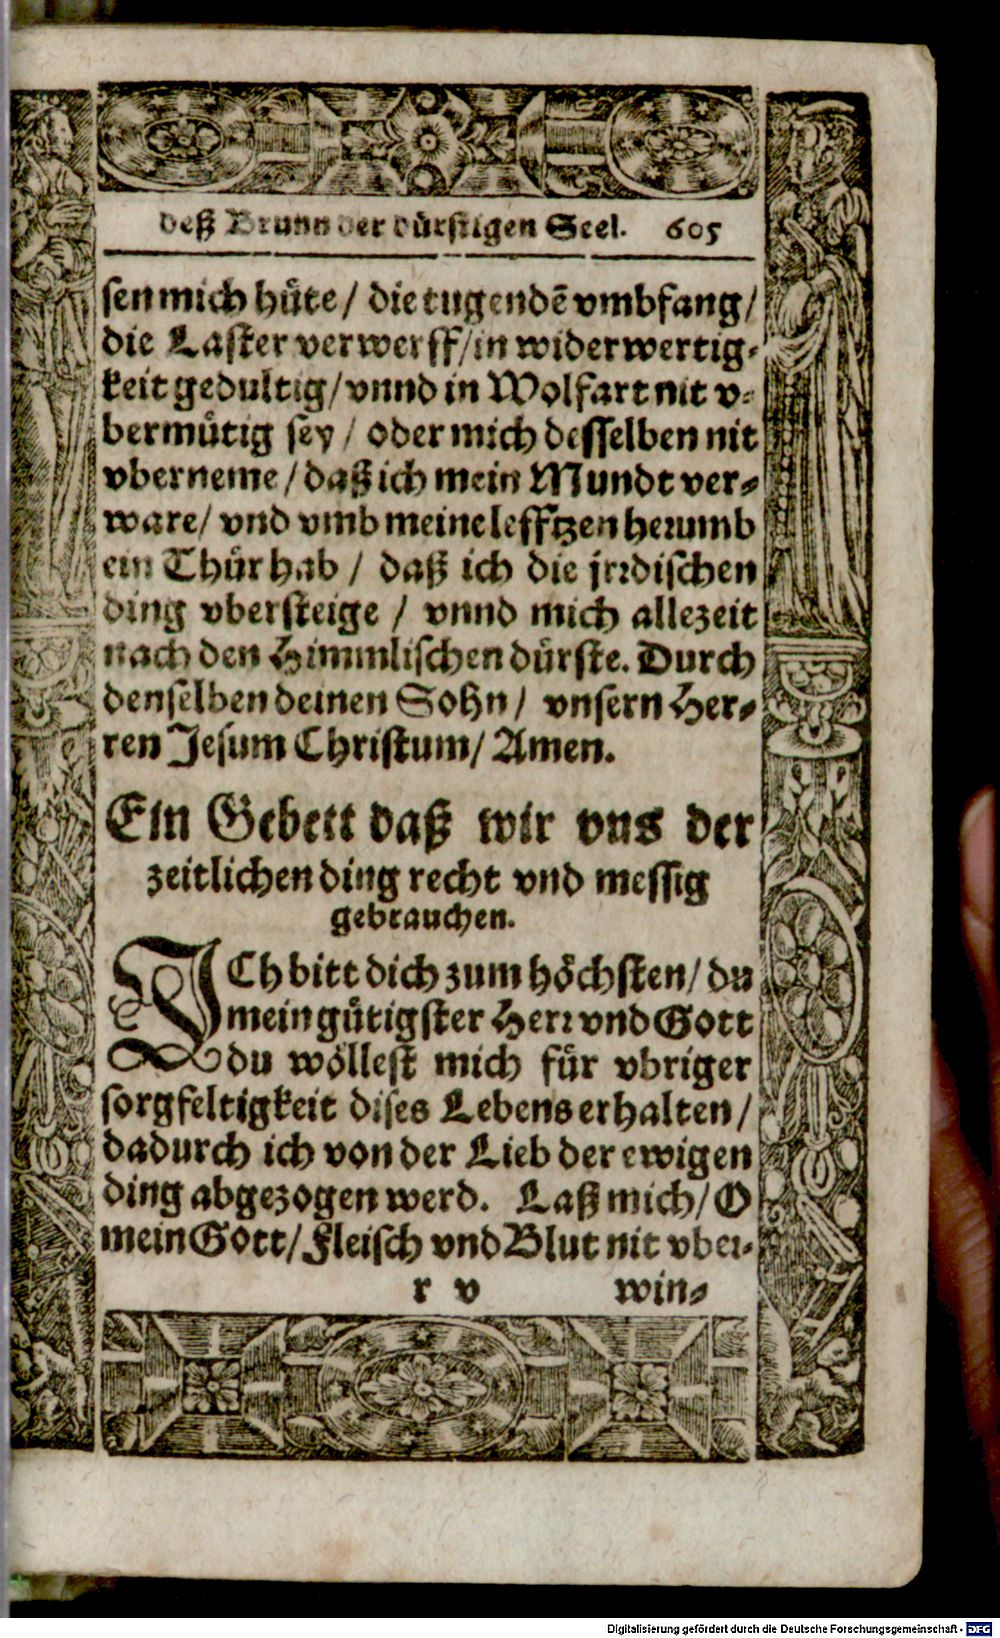 deß Brunn der dürstigen Seel. 605
sen mich hüte / die tugendē vmbfang /
die Laster verwerff / in widerwertig-
keit gedultig / vnnd in Wolfart nit v-
bermütig sey / oder mich desselben nit
vberneme / daß ich mein Mundt ver-
ware / vnd vmb meine lefftzen herumb
ein Thür hab / daß ich die jrrdischen
ding vbersteige / vnnd mich allezeit
nach den Himmlischen dürste. Durch
denselben deinen Sohn / vnsern Her-
ren Jesum Christum / Amen.
Ein Gebett daß wir vns der
zeitlichen ding recht vnd messig
gebrauchen.
ICh bitt dich zum höchsten / du
mein gütigster Herr vnd Gott
du wöllest mich für vbriger
sorgfeltigkeit dises Lebens erhalten /
dadurch ich von der Lieb der ewigen
ding abgezogen werd. Laß mich / O
mein Gott / Fleisch vnd Blut nit vber-
r v win-
Digitalisierung gefördert durch die Deutsche Forschungsgemeinschaft - DFG